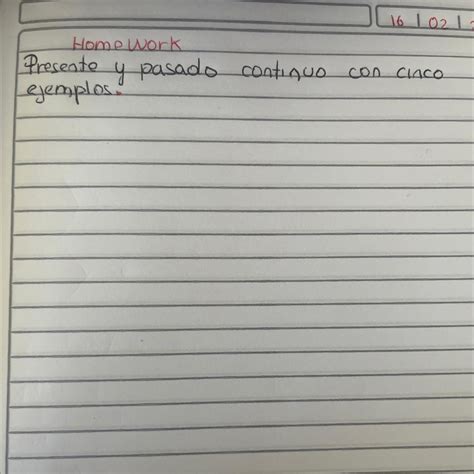 16 | 02 |
HomeWork
Presente y pasado continuo con cinco
ejemplos.